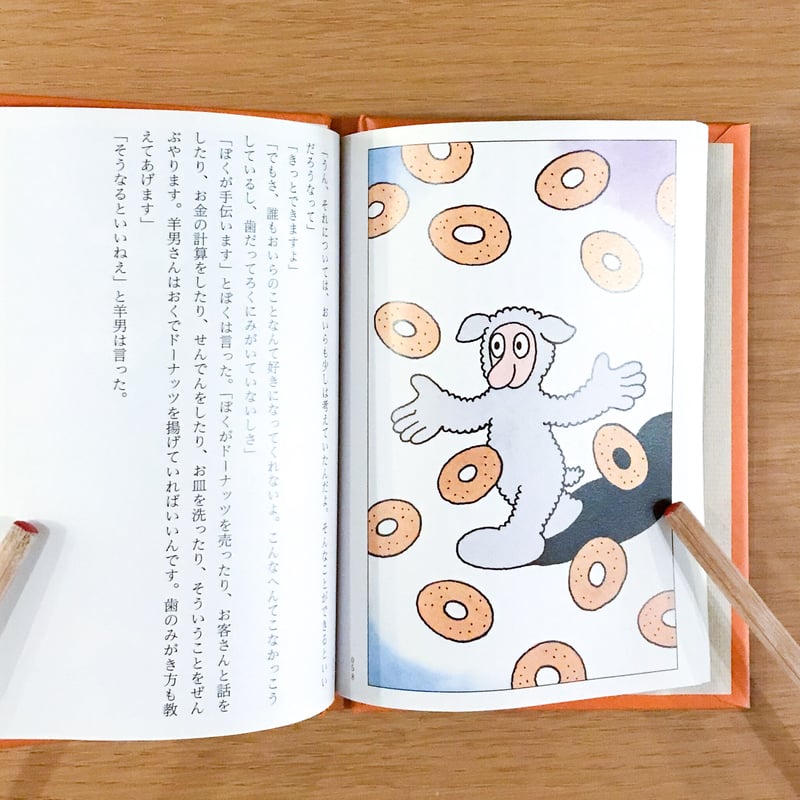 「うん、それについては、おいらも少しは考えていたんだよ。そんなことができるといい
だろうなって」
「きっとできますよ」
「でもさ、誰もおいらのことなんて好きになってくれないよ。こんなへんてこなかっこう
しているし、歯だってろくにみがいていないしさ」
「ぼくが手伝います」とぼくは言った。「ぼくがドーナッツを売ったり、お客さんと話を
したり、お金の計算をしたり、せんでんをしたり、お皿を洗ったり、そういうことをぜん
ぶやります。羊男さんはおくでドーナッツを揚げていればいいんです。歯のみがき方も教
えてあげます」
「そうなるといいねえ」と羊男は言った。
058